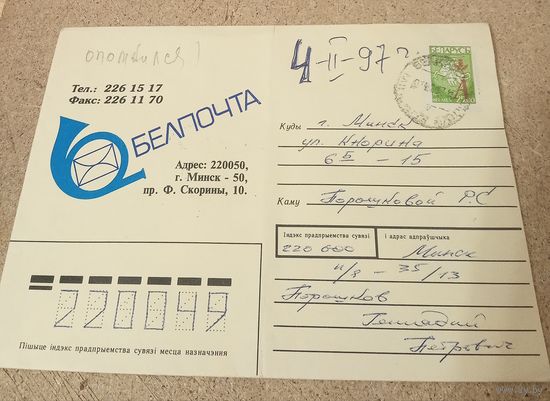 опомнился!
4-II-97г
БЕЛАРУСЬ
Тел.: 226 15 17
Факс: 226 11 70
БЕЛПОЧТА
Адрес: 220050,
г. Минск - 50,
пр. Ф. Скорины, 10.
Куды г. Минск
ул. Кнорина
6Б - 15
Каму Порошковой Р.С
Iндэкс прадпрыемства сувязi
i адрас адпраўшчыка
220 600 Минск
п/я - 35/13
Порошков
Геннадий
Петрович
220049
Пiшыце iндэкс прадпрыемства сувязi месца назначэння